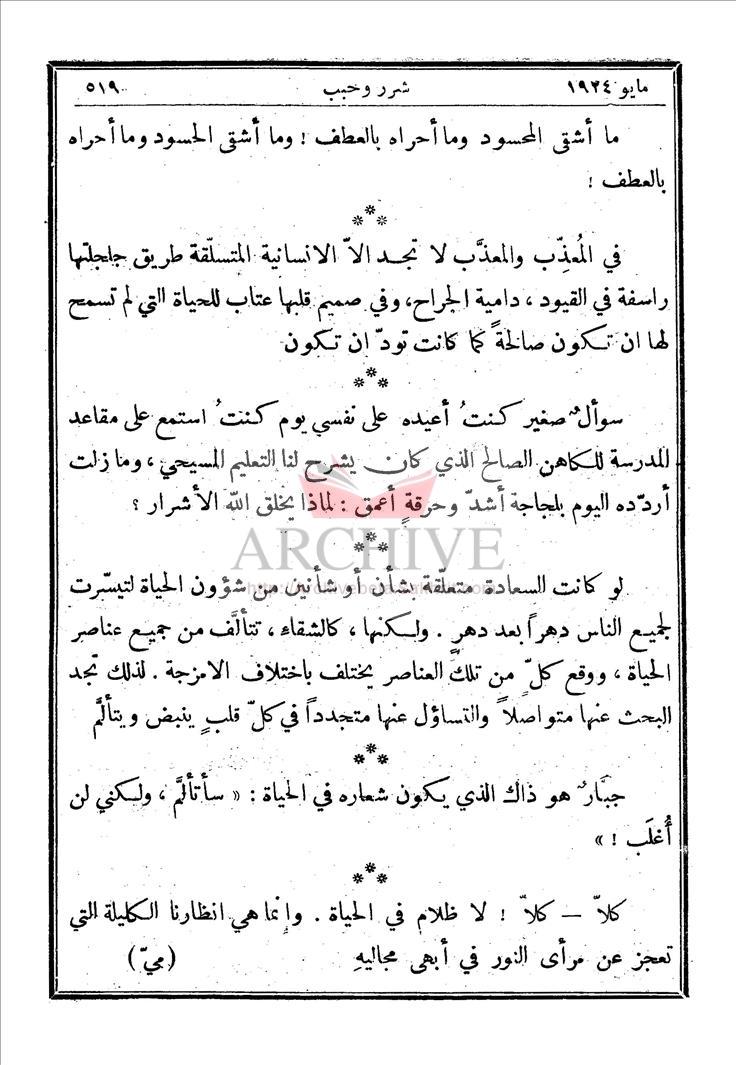 مايو ١٩٢٤ شرر وخبب ٥١٩
ما أشقى المحسود وما أحراه بالعطف ! وما أشقى الحسود وما أحراه
بالعطف !
***
في المُعذِّب والمعذَّب لا تجد الاّ الانسانية المتسلّقة طريق جلجلتها
راسفة في القيود ، دامية الجراح، وفي صميم قلبها عتاب للحياة التي لم تسمح
لها ان تكون صالحةً كما كانت تودّ ان تكون
***
سوألٌ صغير كنتُ أعيده على نفسي يوم كنتُ استمع على مقاعد
المدرسة للكاهن الصالح الذي كان يشرح لنا التعليم المسيحي ، وما زلت
أردّده اليوم بلجاجة أشدّ وحرقةٍ أعمق : لماذا يخلق الله الأشرار ؟
***
ARCHIVE
لو كانت السعادة متعلّقة بشأن أو شأنين من شؤون الحياة لتيسّرت
لجميع الناس دهراً بعد دهرٍ . ولكنها ، كالشقاء ، تتألَّف من جميع عناصر
الحياة ، ووقع كلّ من تلك العناصر يختلف باختلاف الامزجة . لذلك تجد
البحث عنها متواصلاً والتساؤل عنها متجدداً في كلّ قلبٍ ينبض ويتألَّم
***
جبَّارٌ هو ذاك الذي يكون شعاره في الحياة : « سأتألَّم ، ولكني لن
أُغلَب ! »
***
كلاّ — كلاّ ! لا ظلام في الحياة . وإنما هي انظارنا الكليلة التي
تعجز عن مرأى النور في أبهى مجاليهِ (ميّ)